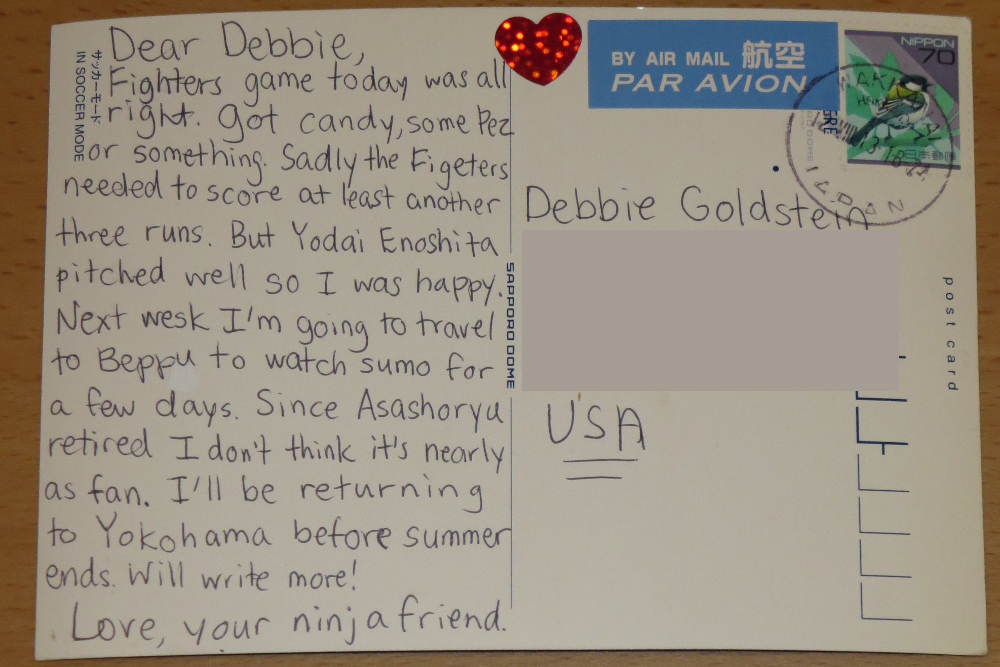 Dear Debbie,
Fighters game today was all
right. Got candy, some Pez
or something. Sadly the Figeters
needed to score at least another
three runs. But Yodai Enoshita
pitched well so I was happy.
Next wesk I'm going to travel
to Beppu to watch sumo for
a few days. Since Asashoryu
retired I don't think it's nearly
as fan. I'll be returning
to Yokohama before summer
ends. Will write more!
Love, your ninja friend.
サッカーモード
IN SOCCER MODE
SAPPORO DOME
BY AIR MAIL 航空
PAR AVION
NIPPON
70
日本郵便
JAPAN
Debbie Goldstein
USA
post card